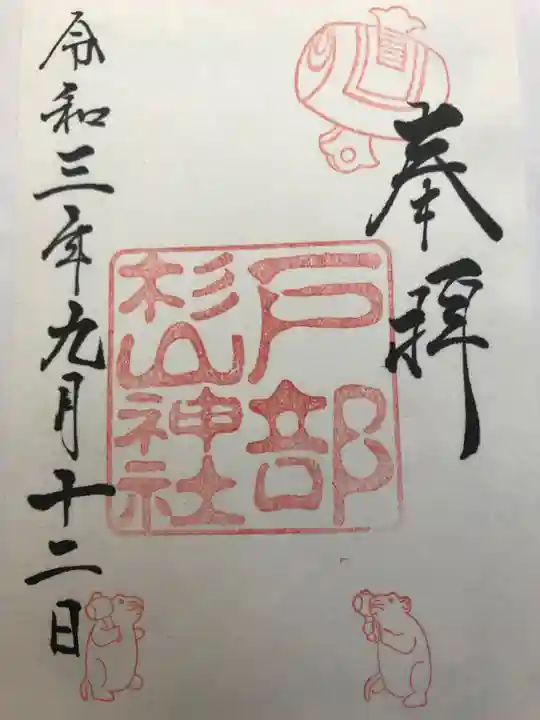 奉拝
戸部
杉山神社
令和三年九月十二日